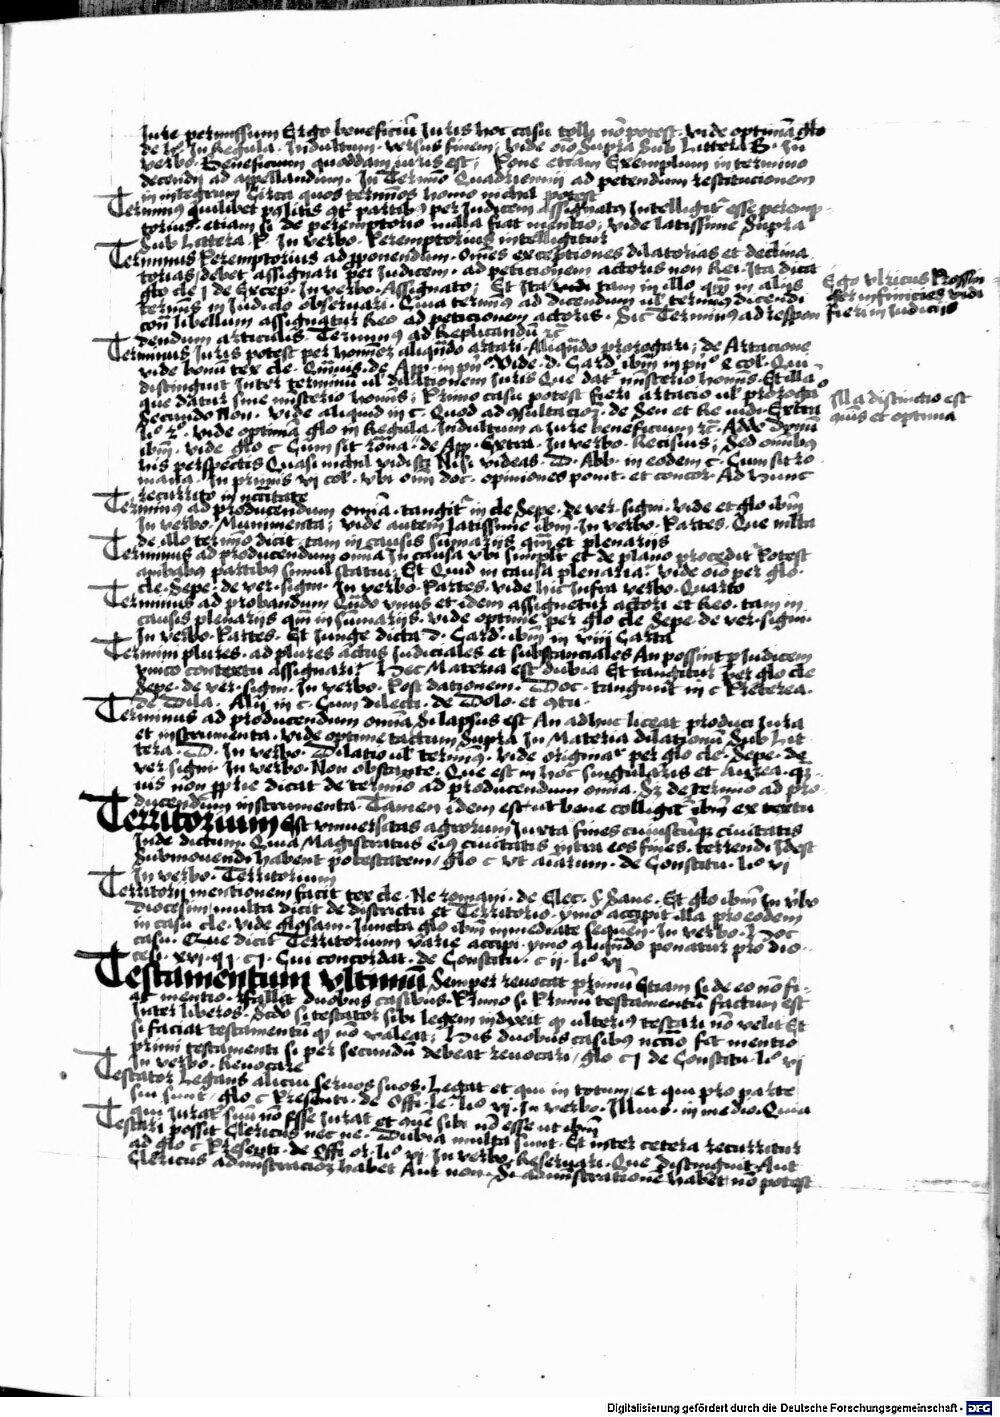 Iure permissum Ergo beneficiū Iuris hoc casu tolli nō potest. vide optimā glo
de In Regula. Indultum. versus finem; vide oīo Supra Sub Littera B. In
verbo. Beneficium quoddam iuris est; Pone etiam Exemplum in termino
decendij ad appellandum. In Termino Quadriennij ad petendum restitucionem
in integrum Circa quos terminos homo nichil potest
Terminus quilibet partibus per Iudicem assignatus Intelligitur esse peremp-
torius. etiam si de peremptorio nulla fiat mentio; vide latissime Supra
Sub Littera P. In verbo. Peremptorius intelligitur
Terminus Peremptorius ad pponendum. Omēs exceptiones dilatorias et declina
torias debet assignari per Iudicem. ad peticionem actoris non Rei. Ita dicit
glo cle j de Excep. In verbo. Assignato; Et Ita vidi tam in illo qm in alijs
terminis in Iudicio observari. Quia terminus ad dicendum ul terminus dicendi
contra libellum assignatur Reo ad peticionem actoris. Sic Terminus ad respon
dendum articulis. Terminus ad Replicandū rc
Ego Ulricus Rossin
infinicies vidi
fieri in Iudicijs
Terminus Iuris potest per homines aliqndo artari. Aliqndo prorogari; de Artacione
vide bonū tex cle. Quis. de App. in pn. Vide. d. Card. ibm in pn. 2 col. Qui
distinguit Inter terminū ul dilationem Iuris Que dat ministerio hominis. Et illa
que datur sine ministerio hominis; Primo casu potest fieri artacio ul proroga
Secundo Non. vide aliquid in c. Quod ad de Sen et Re iudi. Extra
li° vide optimā glo in Regula. Indultum a Iure beneficium rc. Adde
ibm. vide glo c Cum sit romana de App. Extra. In verbo. Recisius; Sed omībus
his perspectis Quasi nichil vidisti Nisi videas. D. Abb. in eodem c. Cum sit ro
mana. In primis vi col. ubi omī doc. opiniones ponit. et concor. Ad hunc
recurrito in nccitate
Illa distinctio est
et optima
Terminus ad producendum omīa. tangit in cle Sepe. de ver. signi. vide et glo ibm
In verbo. Munimenta; vide autem latissime ibm. In verbo. Partes. Que multa
de illo termino dicit. tam in causis sumarijs qm et plenarijs
Terminus ad producendum omīa In causa ubi simplr et de plano procedit Potest
ambabus partibus simul statui; Et Quid in causa plenaria? vide oīo per glo.
cle. Sepe. de ver. signi. In verbo. Partes. vide hic Infra verbo. Quarto
Terminus ad probandum Qndo unus et idem assignetur actori et Reo. tam in
causis plenarijs qm in sumarijs. vide optime per glo cle Sepe. de ver. sigin.
In verbo. Partes. Et Iunge dicta d. Card. ibm in viij Carta
Termini plures. ad plures actus Iudiciales et substanciales An possint p Iudicem
unico contextu assignari? Hec Materia est dubia Et tangitur per glo cle
Sepe. de ver. sigin. In verbo. Post dationem. Doc. tangunt in c Preterea.
de Dila. Alij in c. Cum dilecti. de Dolo. et
Terminus ad producendum omīa Si lapsus est An adhuc liceat produci Iura
et instrumenta. vide optime tactum Supra In Materia dilationū Sub Lit
tera. D. In verbo. Dilatio ul terminus. vide per glo cle. Sepe. de
ver. sigin. In verbo. Non obstante. Que est in hoc singularis et Aurea.
uis non pprie dicat de termino ad producendum omīa. de termino ad pro
ducendum instrumenta. Tamen idem est. ut bene colligit ibm ex textu
Territorium est universitas agrorum Iuxta fines cuiuscūq civitatis
Inde dictum. Quia Magistratus eius civitatis intra eos fines. terrendi Idest
Submovendi habent potestatem/ glo c Ut aiarum. de Constitu. li° vi
In verbo. Territorium
Territorij mentionem facit tex cle. Ne romani. de Elec. § Sane. Et glo ibm In
diocesim/ multa dicit de districtu et Territorio. ymo accipit illa pro eodem
in casu cle. vide glosam. Iuncta glo ibm immediate sequen. In verbo. Hoc
casu. Que dicit Territorium varie accipi. ymo aliqndo pro dio-
cesi. xvi. q j. c j. Cui concordat. de Constitu. c ij. li° vi
Testamentum ultimū Semper revocat primū Etiam si de eo nō fi-
at mentio. Fallit duobus casibus. Primo si Primū testamentū factum est
Inter liberos. Scdo si testator sibi legem indixit q ulterius testari nō velit Et
si faciat testamentū q nō valeat; His duobus casibus fit mentio
primi testamenti si per secundū debeat revocari/ glo c j de Constitu. li° vi
In verbo. Revocare
Testator Legans alicui servos suos. Legat et qui in totum/ et qui pro parte
sui sunt/ glo c Presenti. de Offi. le. li° vi. In verbo. Illius. in medio. Quia
qui suū nō esse Iurat et que sibi esse ut ibm
Testari possit Clericus nec ne. Dubia multa sunt. Et inter cetera recurritur
ad glo c Presenti. de Offi. or. li° vi. In verbo. Reservari. Que distinguit. Aut
Clericus administracionem habet Aut non. Si administrationē habet nō potest
Digitalisierung gefördert durch die Deutsche Forschungsgemeinschaft - DFG